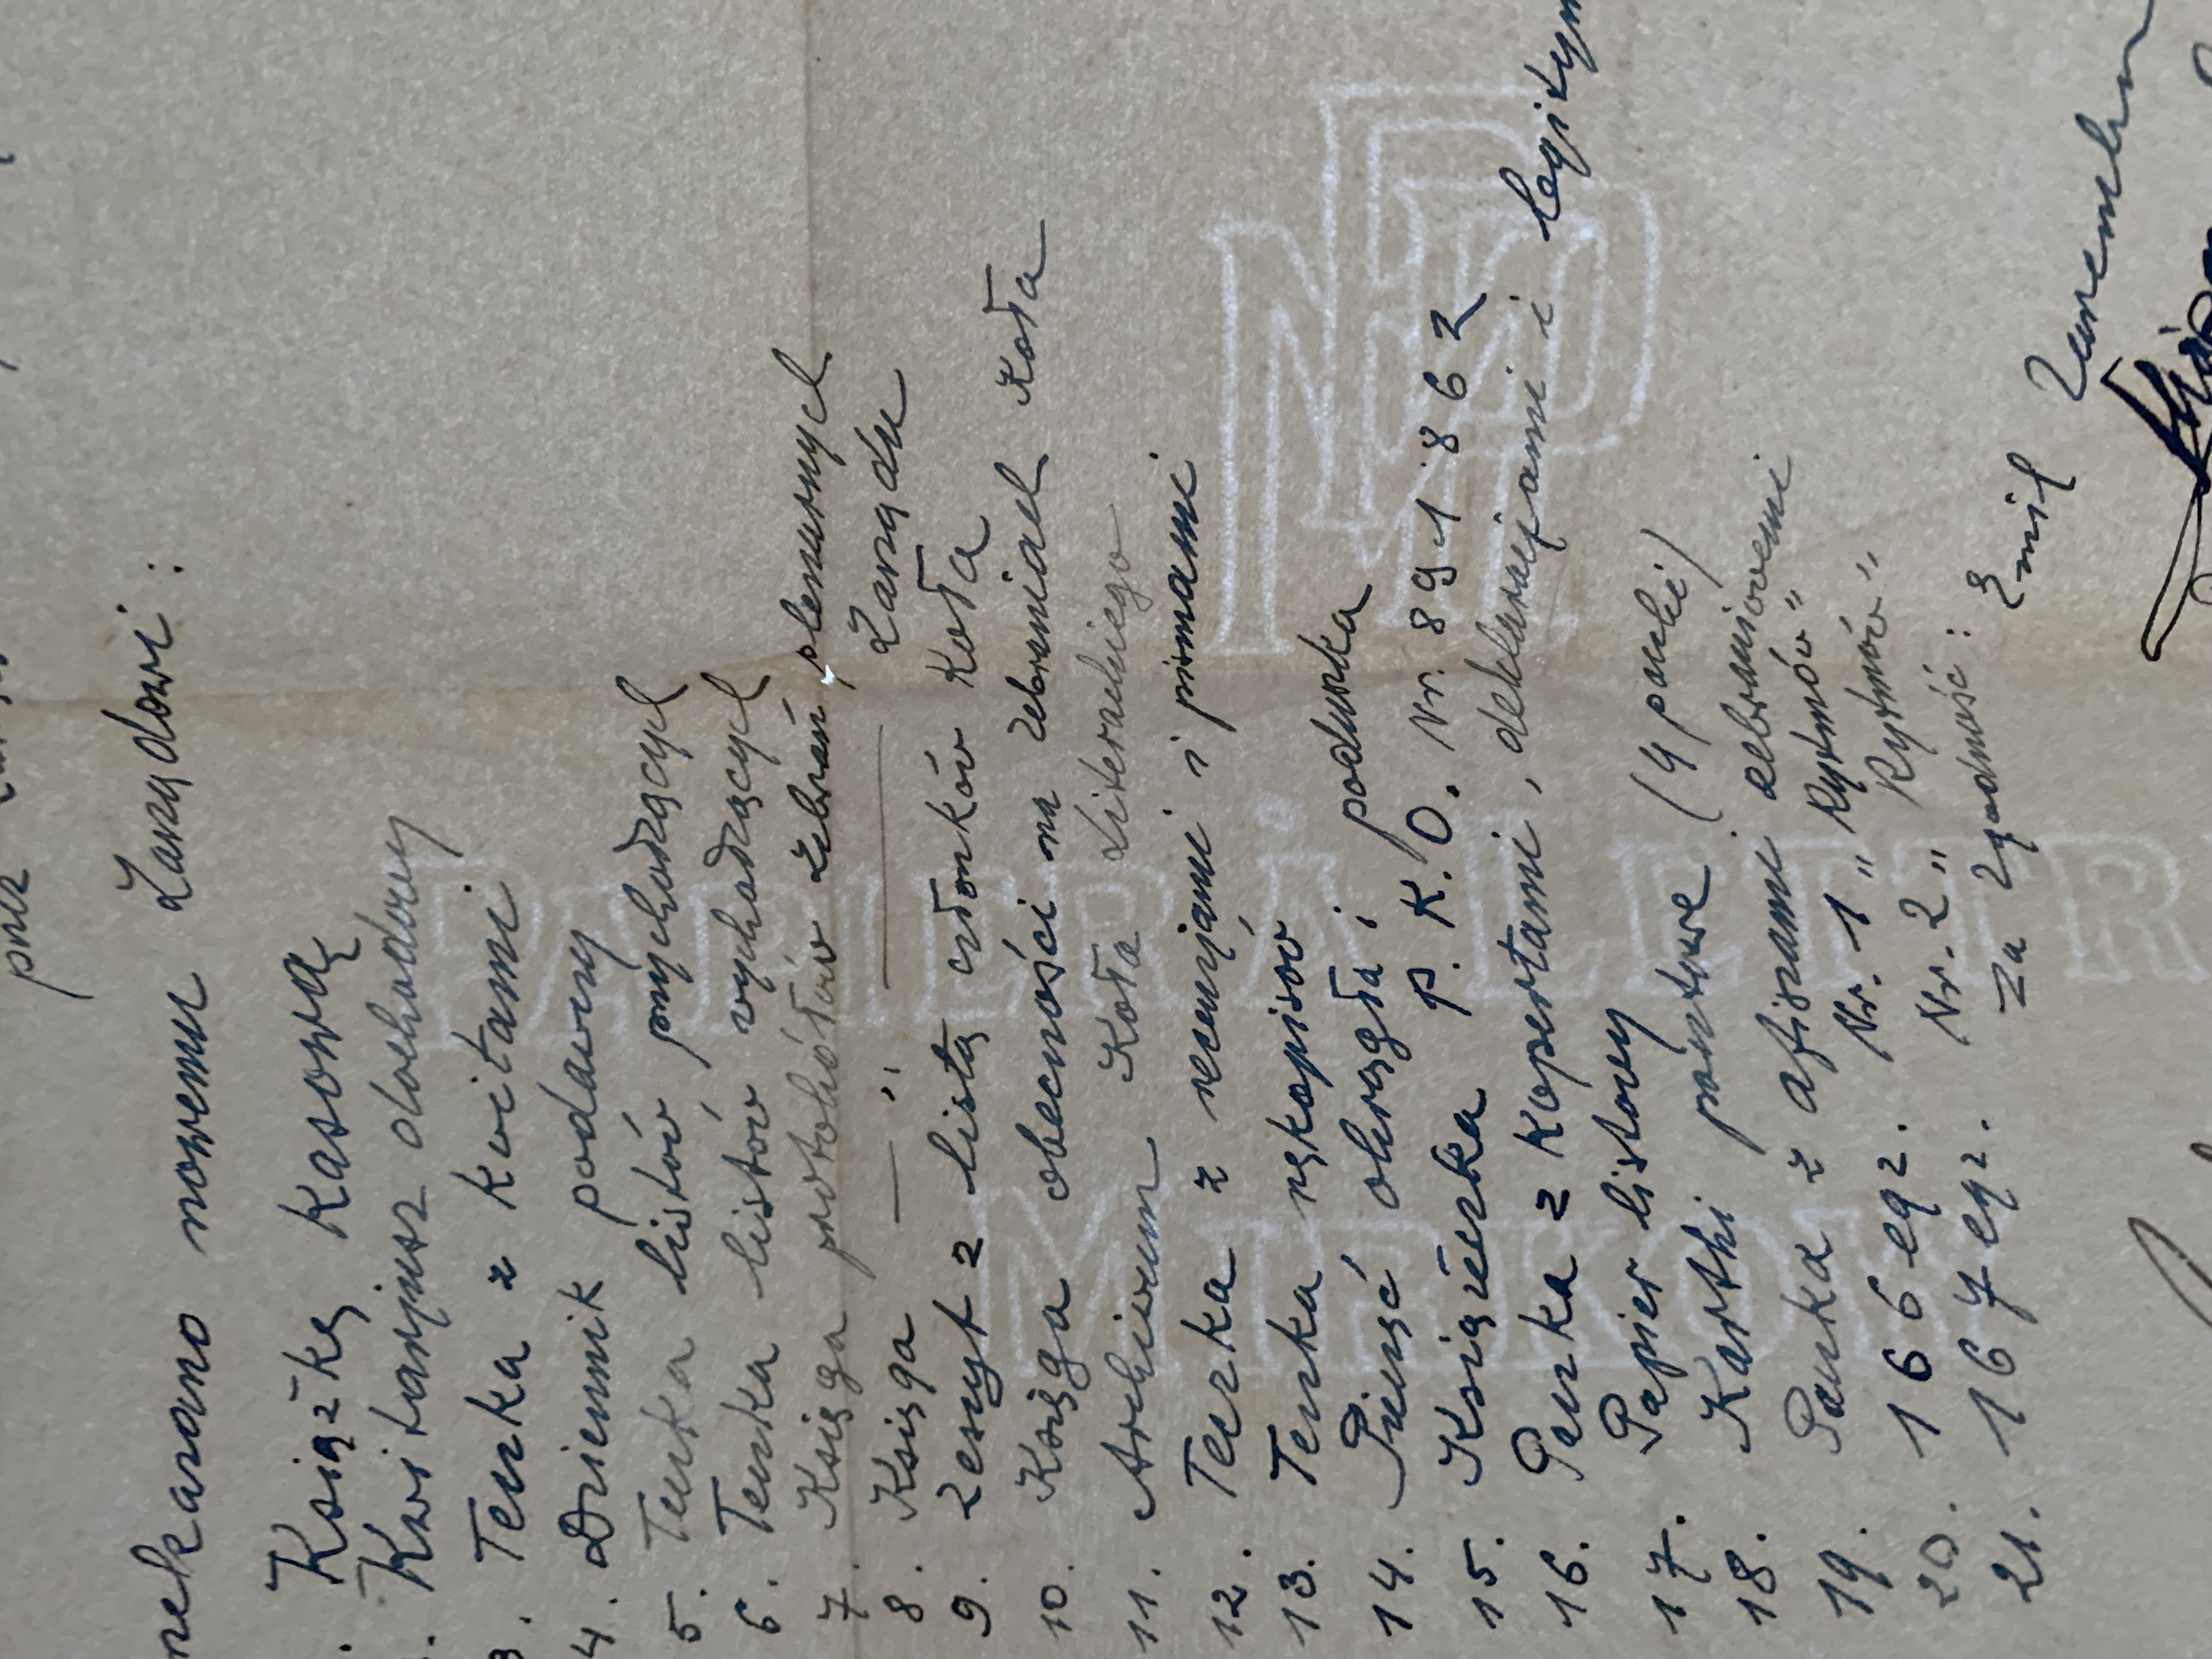 przez
przekazano nowemu Zarządowi:
. Książkę kasową
. Kwitarjusz dochodowy
3. Teczka z kwitami
4. Dziennik podawczy
5. Teczka listów przychodzących
6. Teczka listów wychodzących
7. Księga protokółów zebrań plenarnych
8. Księga — „ — Zarządu
9. Zeszyt z listą członków Koła
10. Księga obecności na zebraniach Koła
11. Archiwum Koła Literackiego
12. Teczka z recenzjami i pismami
13. Teczka rękopisów
14. Pieczęć okrągła i poduszka
15. Książeczka P. K. O. Nr. 891862
16. Paczka z kopertami, deklaracjami i legitym
17. Papier listowy
18. Kartki pocztowe (4 paczki)
19. Paczka z afiszami zebraniowemi
20. 166 egz. Nr. 1 „Rytmów"
21. 167 egz. Nr. 2 „Rytmów"
Za zgodność:
Emil
PAPIER i LETTR
MIRKÓW